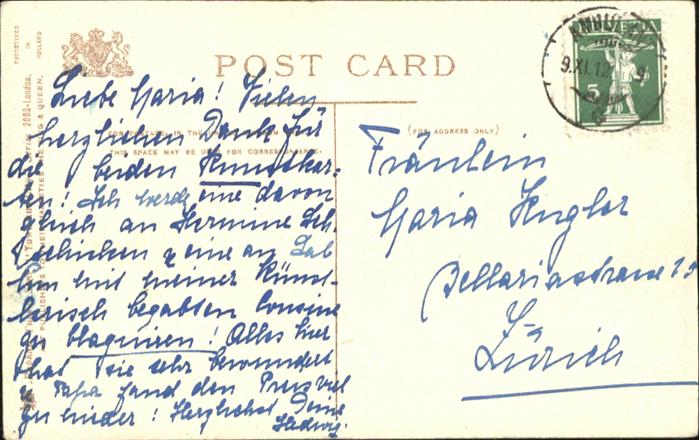 POST CARD
(FOR ADDRESS ONLY)
THIS SPACE MAY BE USED FOR CORRESPONDENCE
PHOTOTYPED IN HOLLAND
HELVETIA
5
9.XI.12
Liebe Maria! Vielen
herzlichen Dank für
die beiden Kunstkar-
ten! Ich werde eine davon
gleich an Hermine
schicken & eine an
um mit meiner künst-
lerisch begabten Cousine
zu blaguiren! Alles hier
hat sie sehr bewundert
& Papa fand den Preis viel
zu nieder! Herzlichst Deine
Hedwig.
Fräulein
Maria Hugler
Bellariastrasse
Zürich